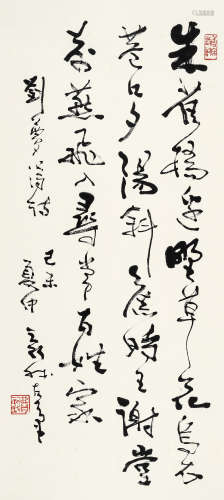 朱雀橋邊野草花烏衣
巷口夕陽斜舊時王謝堂
前燕飛入尋常百姓家
劉夢得詩
己未
夏仲